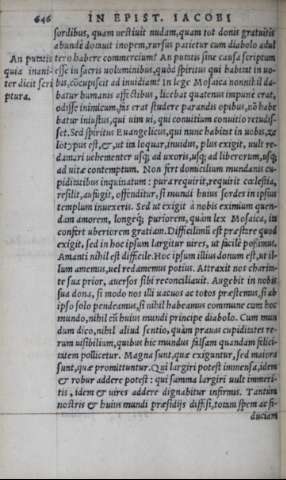 646 IN EPIST. IACOBI
sordibus, quam uestiuit nudam, quam tot donis gratuitis
abundè donauit inopem, rursus parietur cum diabolo adul
An putatis
tero habere commercium? An putatis sine causa scriptum
quia inani-
esse in sacris uoluminibus, quòd spiritus qui habitat in uo-
ter dicit scri
bis, cōcupiscit ad inuidiam? In lege Mosaica nonnihil da-
ptura.
batur humanis affectibus, licebat quatenus impunè erat,
odisse inimicum, fas erat studere parandis opibus, nō habe
batur iniustus, qui uim ui, qui conuitium conuitio retudis-
set. Sed spiritus Euangelicus, qui nunc habitat in uobis, ze
lotypus est, & ut ita loquar, inuidus, plus exigit, uult re-
damari uehementer usq; ad uxoris, usq; ad liberorum, usq;
ad uitæ contemptum. Non fert domicilium mundanis cu-
piditatibus inquinatum: pura requirit, requirit cælestia,
resilit, aufugit, offenditur, si mundi huius sordes in ipsius
templum inuexeris. Sed ut exigit à nobis eximium quen-
dam amorem, longeq; puriorem, quàm lex Mosaica, ita
confert uberiorem gratiam. Difficilimū est præstare quod
exigit, sed in hoc ipsum largitur uires, ut facile possimus.
Amanti nihil est difficile. Hoc ipsum illius donum est, ut il-
lum amemus, uel redamemus potius. Attraxit nos charita-
te sua prior, auersos sibi reconciliauit. Augebit in nobis
sua dona, si modo nos illi uacuos ac totos præstemus, si ab
ipso solo pendeamus, si nihil habeamus commune cum hoc
mundo, nihil cū huius mundi principe diabolo. Cum mun
dum dico, nihil aliud sentio, quàm prauas cupiditates re-
rum uisibilium, quibus hic mundus falsam quandam felici-
tatem pollicetur. Magna sunt, quæ exiguntur, sed maiora
sunt, quæ promittuntur. Qui largiri potest immensa, idem
& robur addere potest: qui summa largiri uult immeri-
tis, idem & uires addere dignabitur infirmis. Tantum
nostris & huius mundi præsidijs diffisi, totam spem ac fi-
duciam